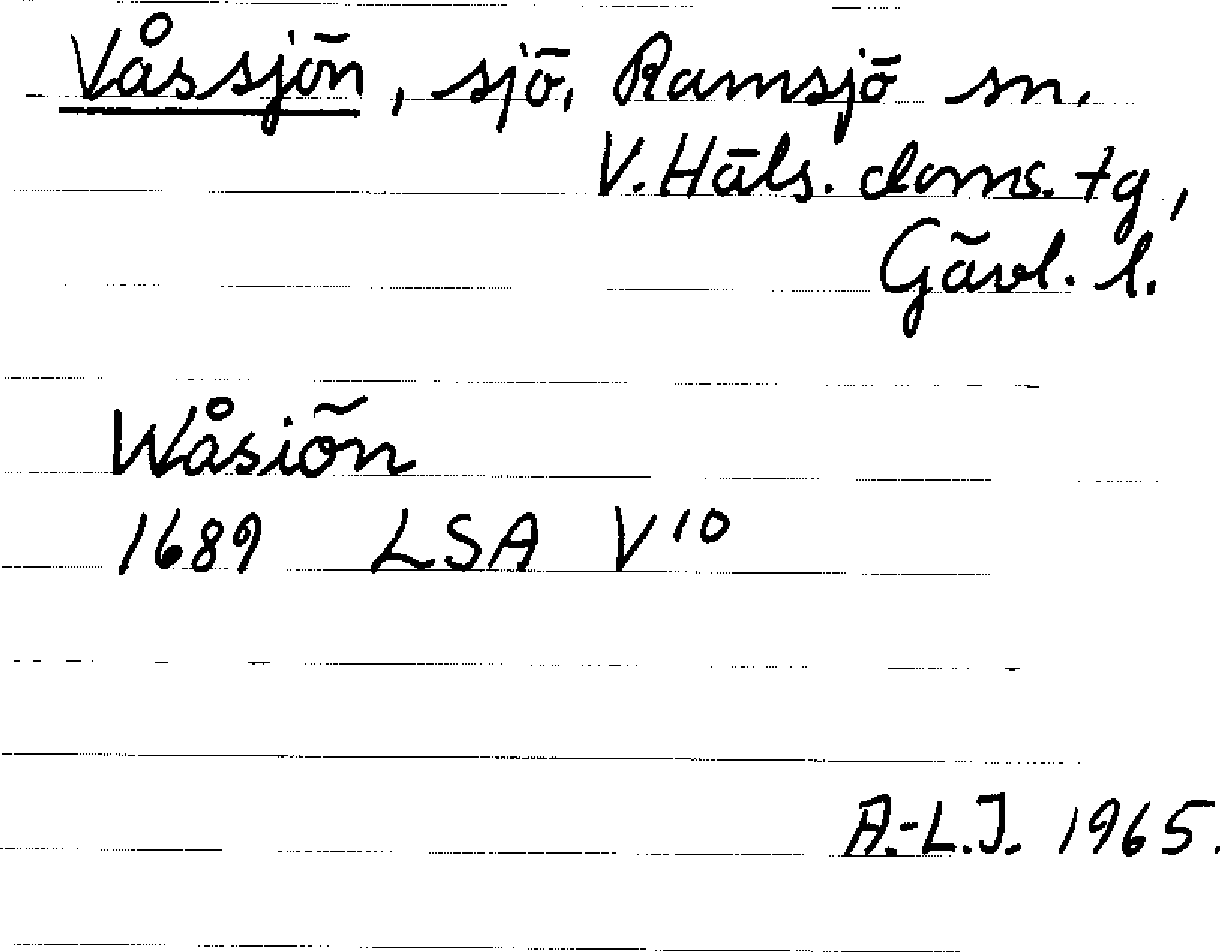 Våssjön, sjö, Ramsjö sn,
V. Häls. doms. tg,
Gävl. l.
Wåsiön
1689 LSA V 10
A.-L.J. 1965.